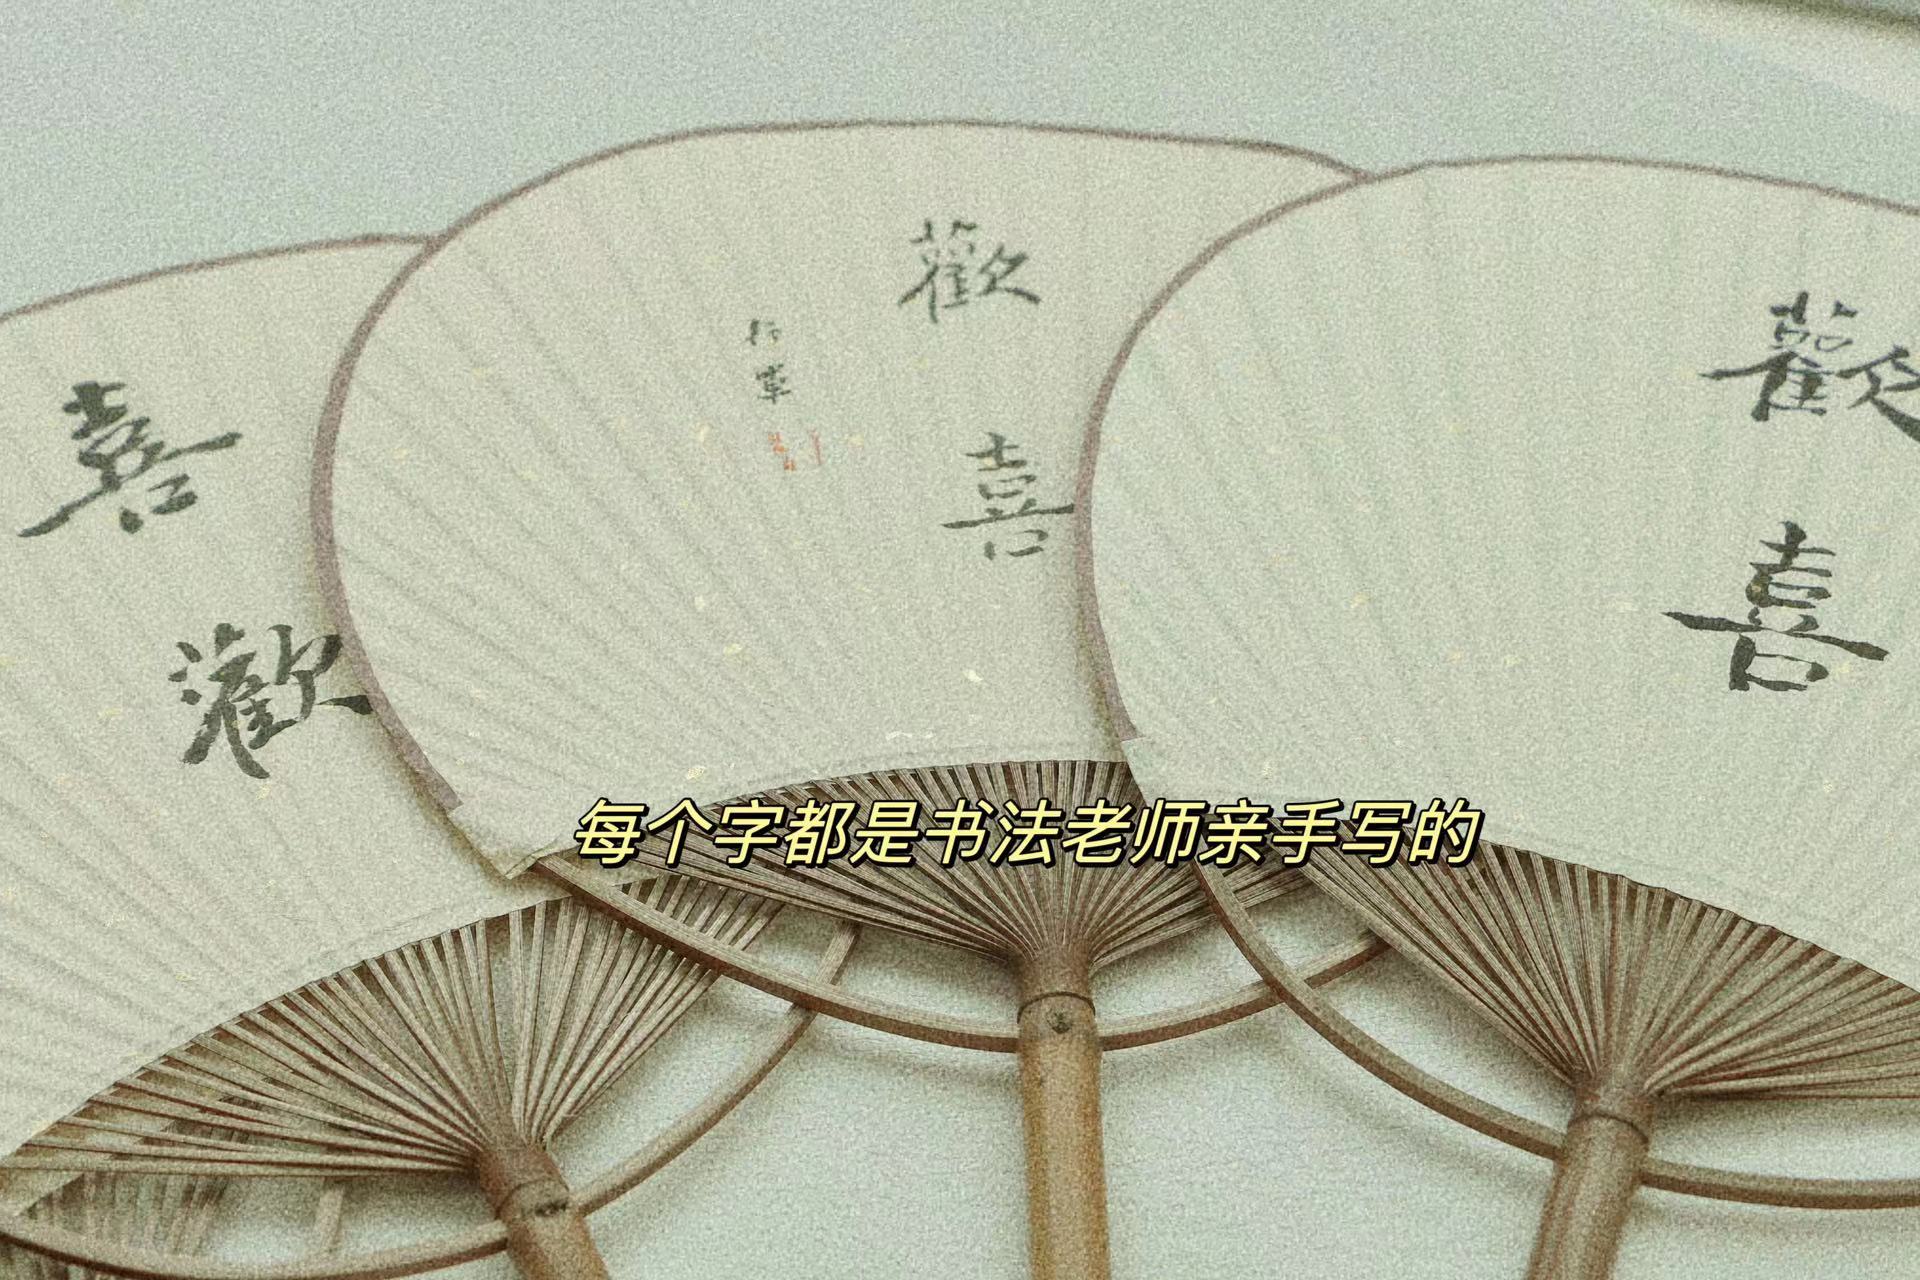 喜
歡
歡
喜
歡
喜
每个字都是书法老师亲手写的